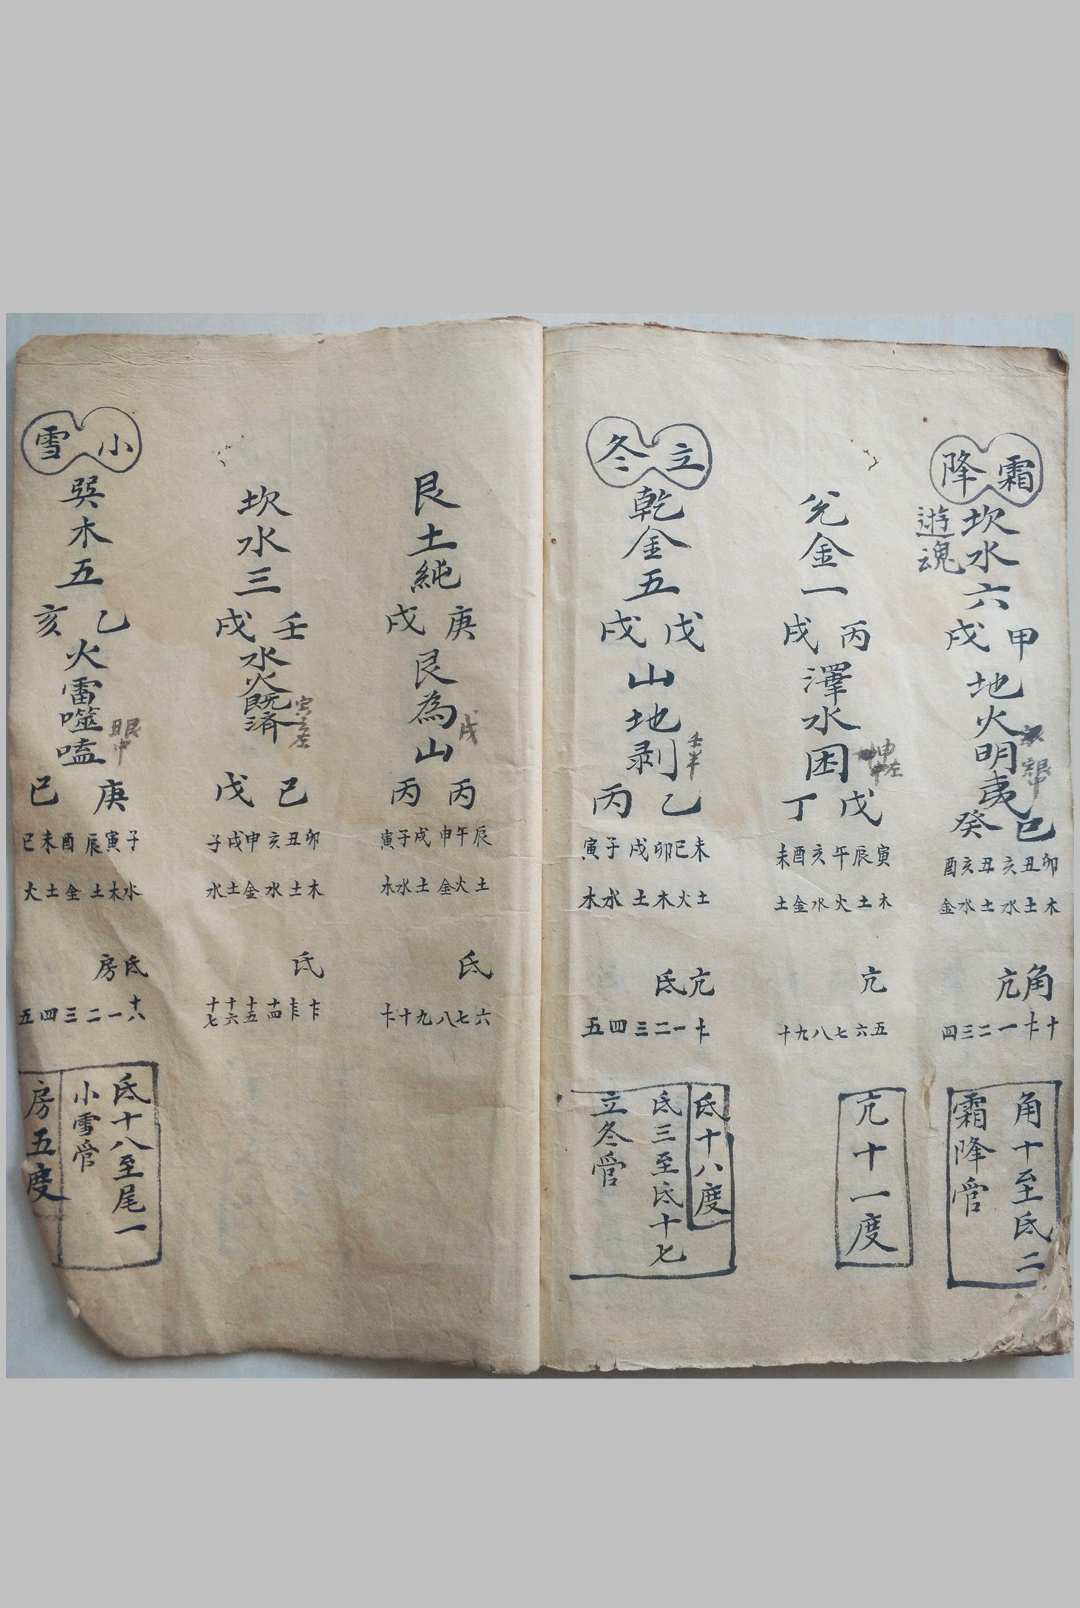 霜降
坎水六
遊魂
甲戌
地火明夷
己癸
卯丑亥丑亥酉
木土水土水金
角亢
十卜一二三四
角十至氐二
霜降管
兑金一
丙戌
澤水困
戊丁
寅辰午亥酉未
木土火水金土
亢
五六七八九十
亢十一度
立冬
乾金五
戊戌
山地剥
乙丙
未巳卯戌子寅
土火木土水木
亢氐
卜一二三四五
氐十八度
氐三至氐十七
立冬管
艮土純
庚戌
艮為山
戌
丙丙
辰午申戌子寅
土火金土水木
氐
六七八九十卜
坎水三
壬戌
水火既済
己戊
卯丑亥申戌子
木土水金土水
氐
十四十五十六十七
小雪
巽木五
乙亥
火雷噬嗑
庚己
子寅辰酉未巳
水木土金土火
氐房
十八一二三四五
氐十八至尾一
小雪管
房五度